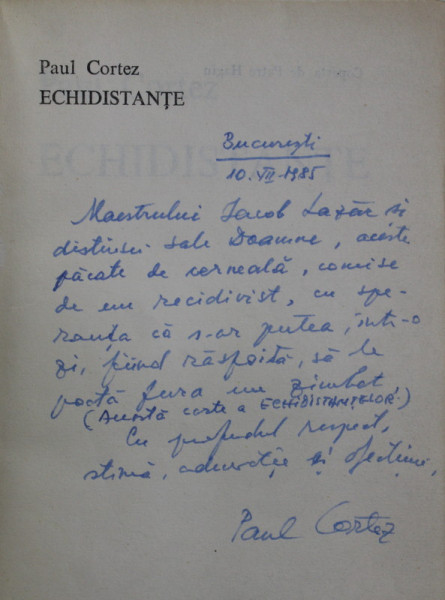 Paul Cortez
ECHIDISTANȚE
București
10.VII-1985
Maestrului Iacob Lazăr și
distinsei sale Doamne, aceste
păcate de cerneală, comise
de un recidivist, cu spe-
ranța că s-ar putea, într-o
zi, fiind răsfoită, să le
poată fura un zîmbet,
(Această carte a ECHIDISTANȚELOR)
Cu profundul respect,
stimă, admirație și afecțiune,
Paul Cortez